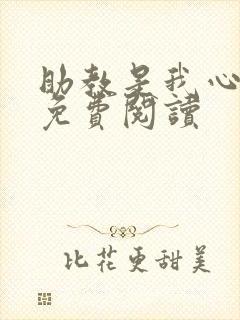 助教是我心
免費閱讀
比花更甜美